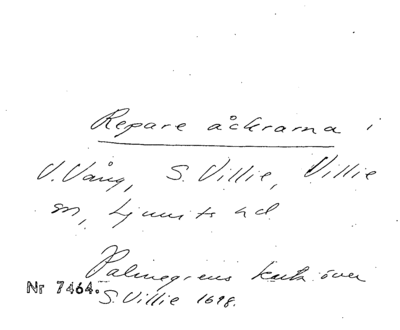 Repare åckrarna i
V. Vång, S. Villie, Villie
sn, Ljunits hd
Palmegrens karta över
Nr 7464. S. Villie 1698.